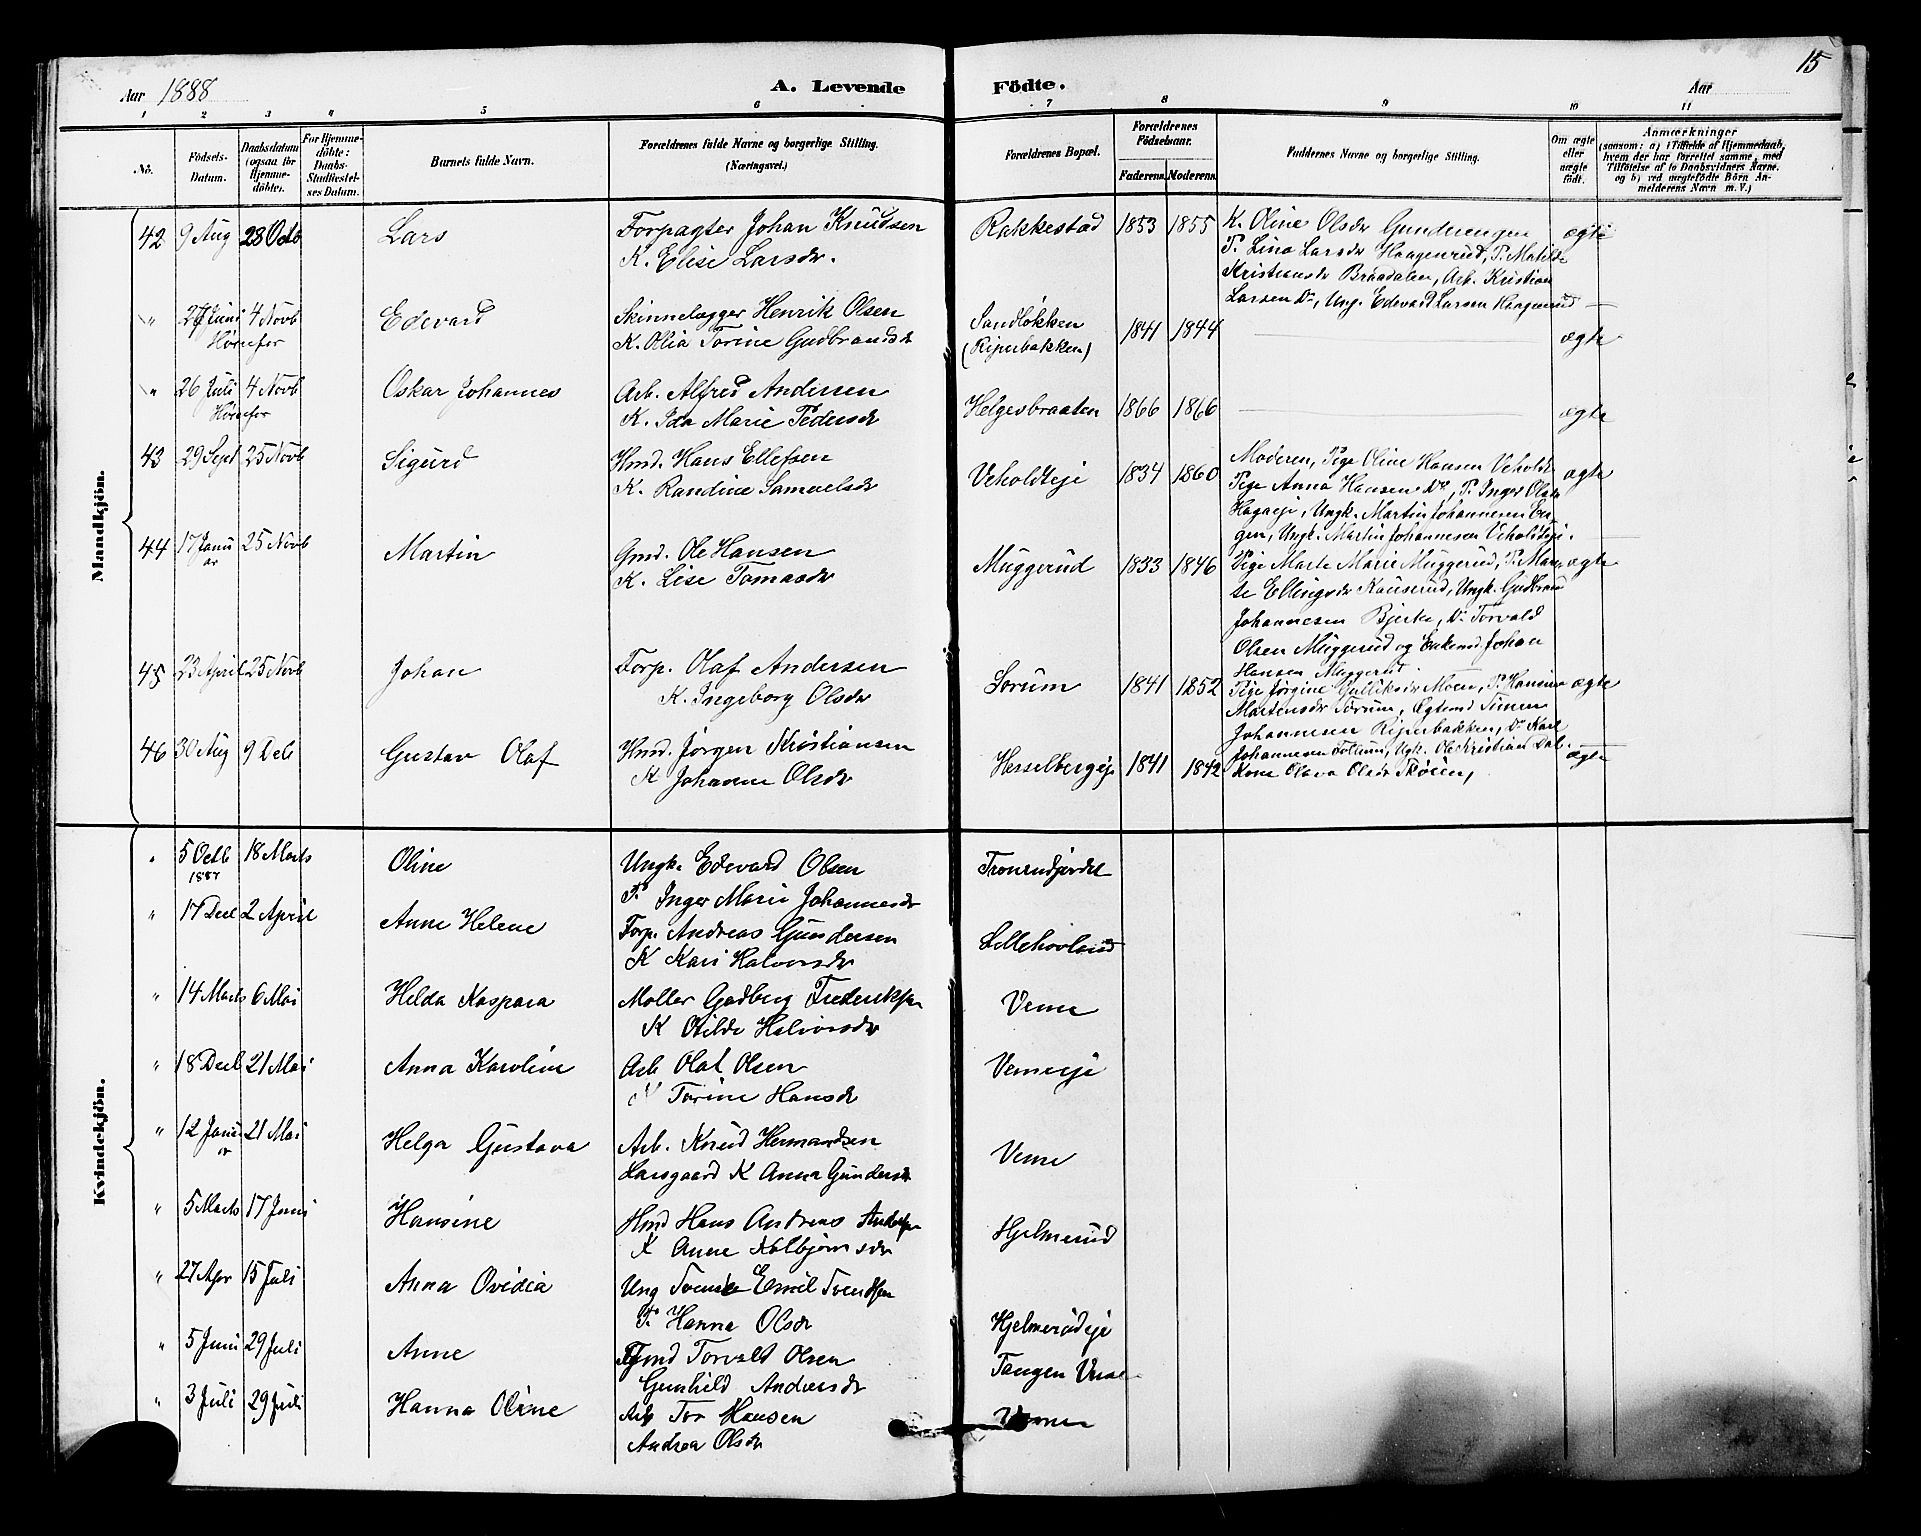 15
Aar 1888 A. Levende Födte. Aar
1 2 3 4 5 6 7 8 9 10 11
No.
Födsels-Datum.
Daabsdatum (ogsaa for Hjemmedöbte).
For Hjemmedöbte: Daabs-Stadfæstelses Datum.
Barnets fulde Navn.
Forældrenes fulde Navne og borgerlige Stilling. (Næringsvei.)
Forældrenes Bopæl.
Forældrenes Födselsaar.
Faderens. Moderens.
Faddernes Navne og borgerlige Stilling.
Om ægte eller uægte födt.
Anmærkninger
(saasom: a) i Tilfælde af Hjemmedaab,
hvem der har forrettet samme, med
Tilföielse af to Daabsvidners Navne.
og b) ved uægtefödte Börn An-
melderens Navn m. V.)
Mandkjön.
42 9 Aug 28 Octo Lars Forpagter Johan Knudsen
K. Elise Larsdr.
Rakkestad 1853 1855 K. Oline Olsdr Gunderengen ægte
P. Lina Larsdr Haagenrud, P. Matilde
Kristensdr Braadalen, Arb. Kristian
Larsen Do, Ung. Edevard Larsen Haagenrud
" 27 Juni 4 Novb Edevard Skinnelægger Henrik Olsen
Hønefos K. Olia Torine Gudbrandsdr
Sandløkken (Riperbakken) 1841 1844 ægte
" 26 Juli 4 Novb Oskar Johannes Arb. Alfred Andersen
Hønefos K. Ida Marie Pedersdr
Helgesbraaten 1866 1866 ægte
43 29 Sept 25 Novb Sigurd Hmd. Hans Ellefsen
K. Randine Samuelsdr
Veholdteje 1834 1860 Moderen, Pige Oline Hansen Veholdt ægte
Pige Anna Hansen Do, P. Inger Olsdr
Hagaeje, Ungk. Martin Johannesen
gen, Ungk. Martin Johannesen Veholdteje.
44 17 Januar 25 Novb Martin Gmd. Ole Hansen
K. Lise Tomasdr
Muggerud 1833 1846 Pige Marte Marie Muggerud, P. Mar- ægte
te Ellingsdr Kauserud, Ungk. Gudbrand
Johannesen Bjerke, Do Torvald
Olsen Muggerud og Enkemd Johan
Hansen Muggerud
45 23 April 25 Novb Johan Forp. Olaf Andersen
K. Ingeborg Olsdr
Sorum 1841 1852 Pige Jørgine Gulliksdr Moen, P. Hansine ægte
Martensdr Sørum, Ægtemd Simen
Johannesen Riperbakken, Do Karl
Johannesen Follum, Ugk. Ole Kristian Dal.
46 30 Aug 9 Deb Gustav Olaf Hmd. Jørgen Kristiansen
K Johanne Olsdr
Hesselbergeje 1841 1842 Kone Olava Olsdr Skøien, ægte
Kvindekjön.
" 5 Octb 1887 18 Marts Oline Ungk. Edevard Olsen
P. Inger Marie Johannesdr
Tronrudfjordet
" 17 Decb 2 April Anne Helene Forp. Andreas Gundersen
K Kari Halvorsdr
Lillehovland
" 14 Marts 6 Mai Helda Kaspara Møller Gudberg Frederiksen
K Otilde Halvorsdr
Veme
" 18 Decb 21 Mai Anna Karoline Arb Olaf Olsen
K Torine Hansdr
Vemeeje
" 12 Januar 21 Mai Helga Gustava Arb. Knud Hermandsen
Larsgaard K Anna Gundersdr
Veme
" 5 Marts 17 Juni Hansine Hmd Hans Andreas Andersen
K Anne Kolbjørnsdr
Hjelmerud
" 27 Apr 15 Juli Anna Ovidia Ung Svenske Emil Svendsen
P. Hanna Olsdr
Hjelmerudeje
" 5 Juni 29 Juli Anne Gmd Torvalt Olsen
Gunhild Andersdr
Tangen Veme
" 3 Juli 29 Juli Hanna Oline Arb Tor Hansen
Andrea Olsdr
Veme